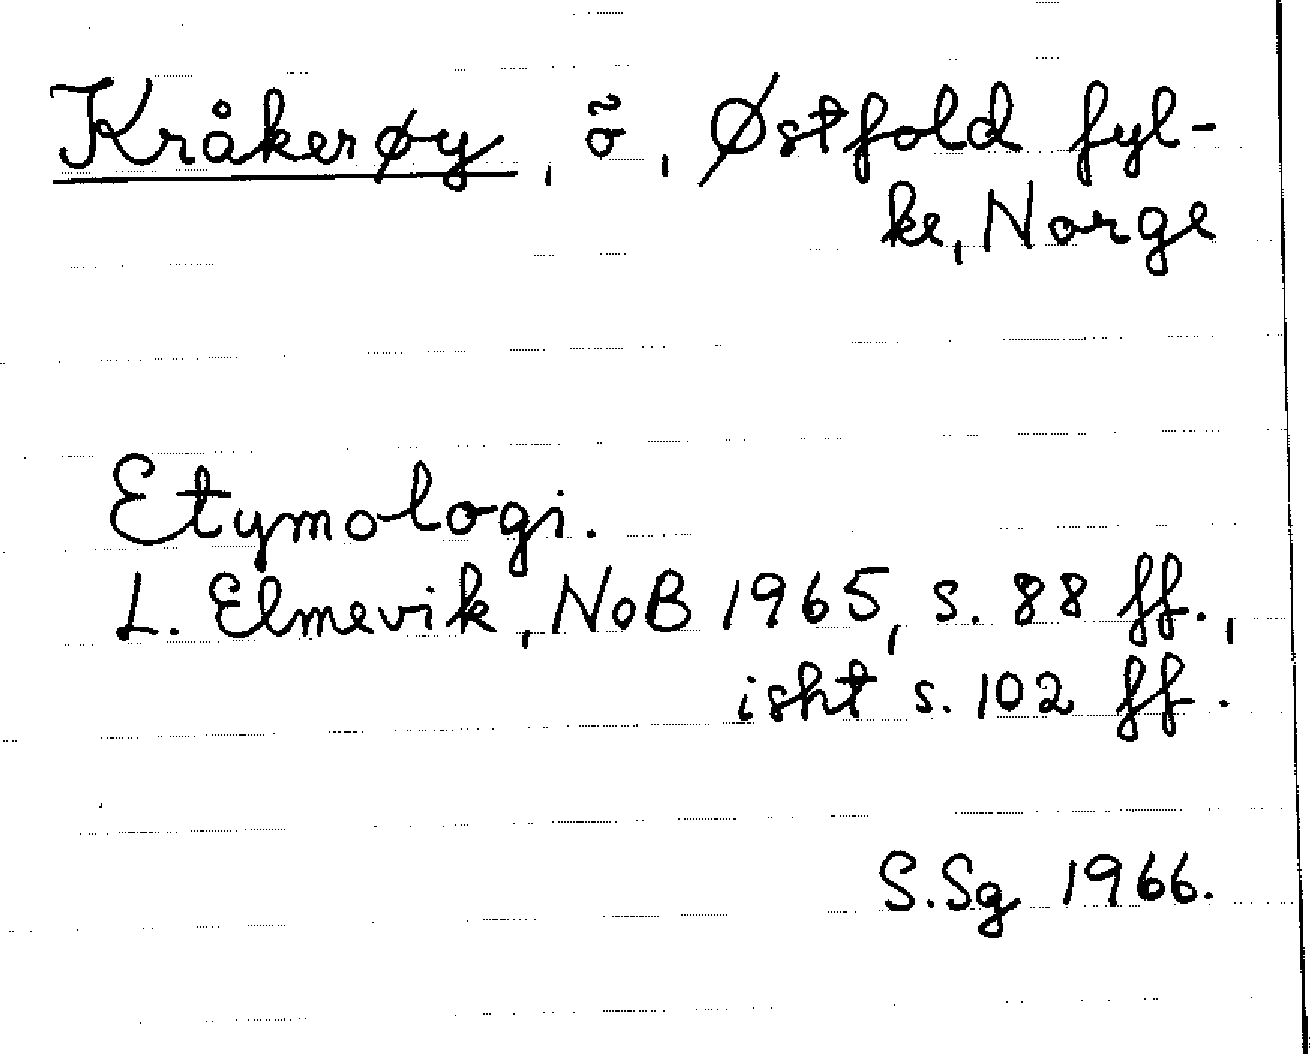 Kråkerøy, ö, Østfold fyl-
ke, Norge
Etymologi.
L. Elmevik, NoB 1965, s. 88 ff.,
isht s. 102 ff.
S.Sg 1966.